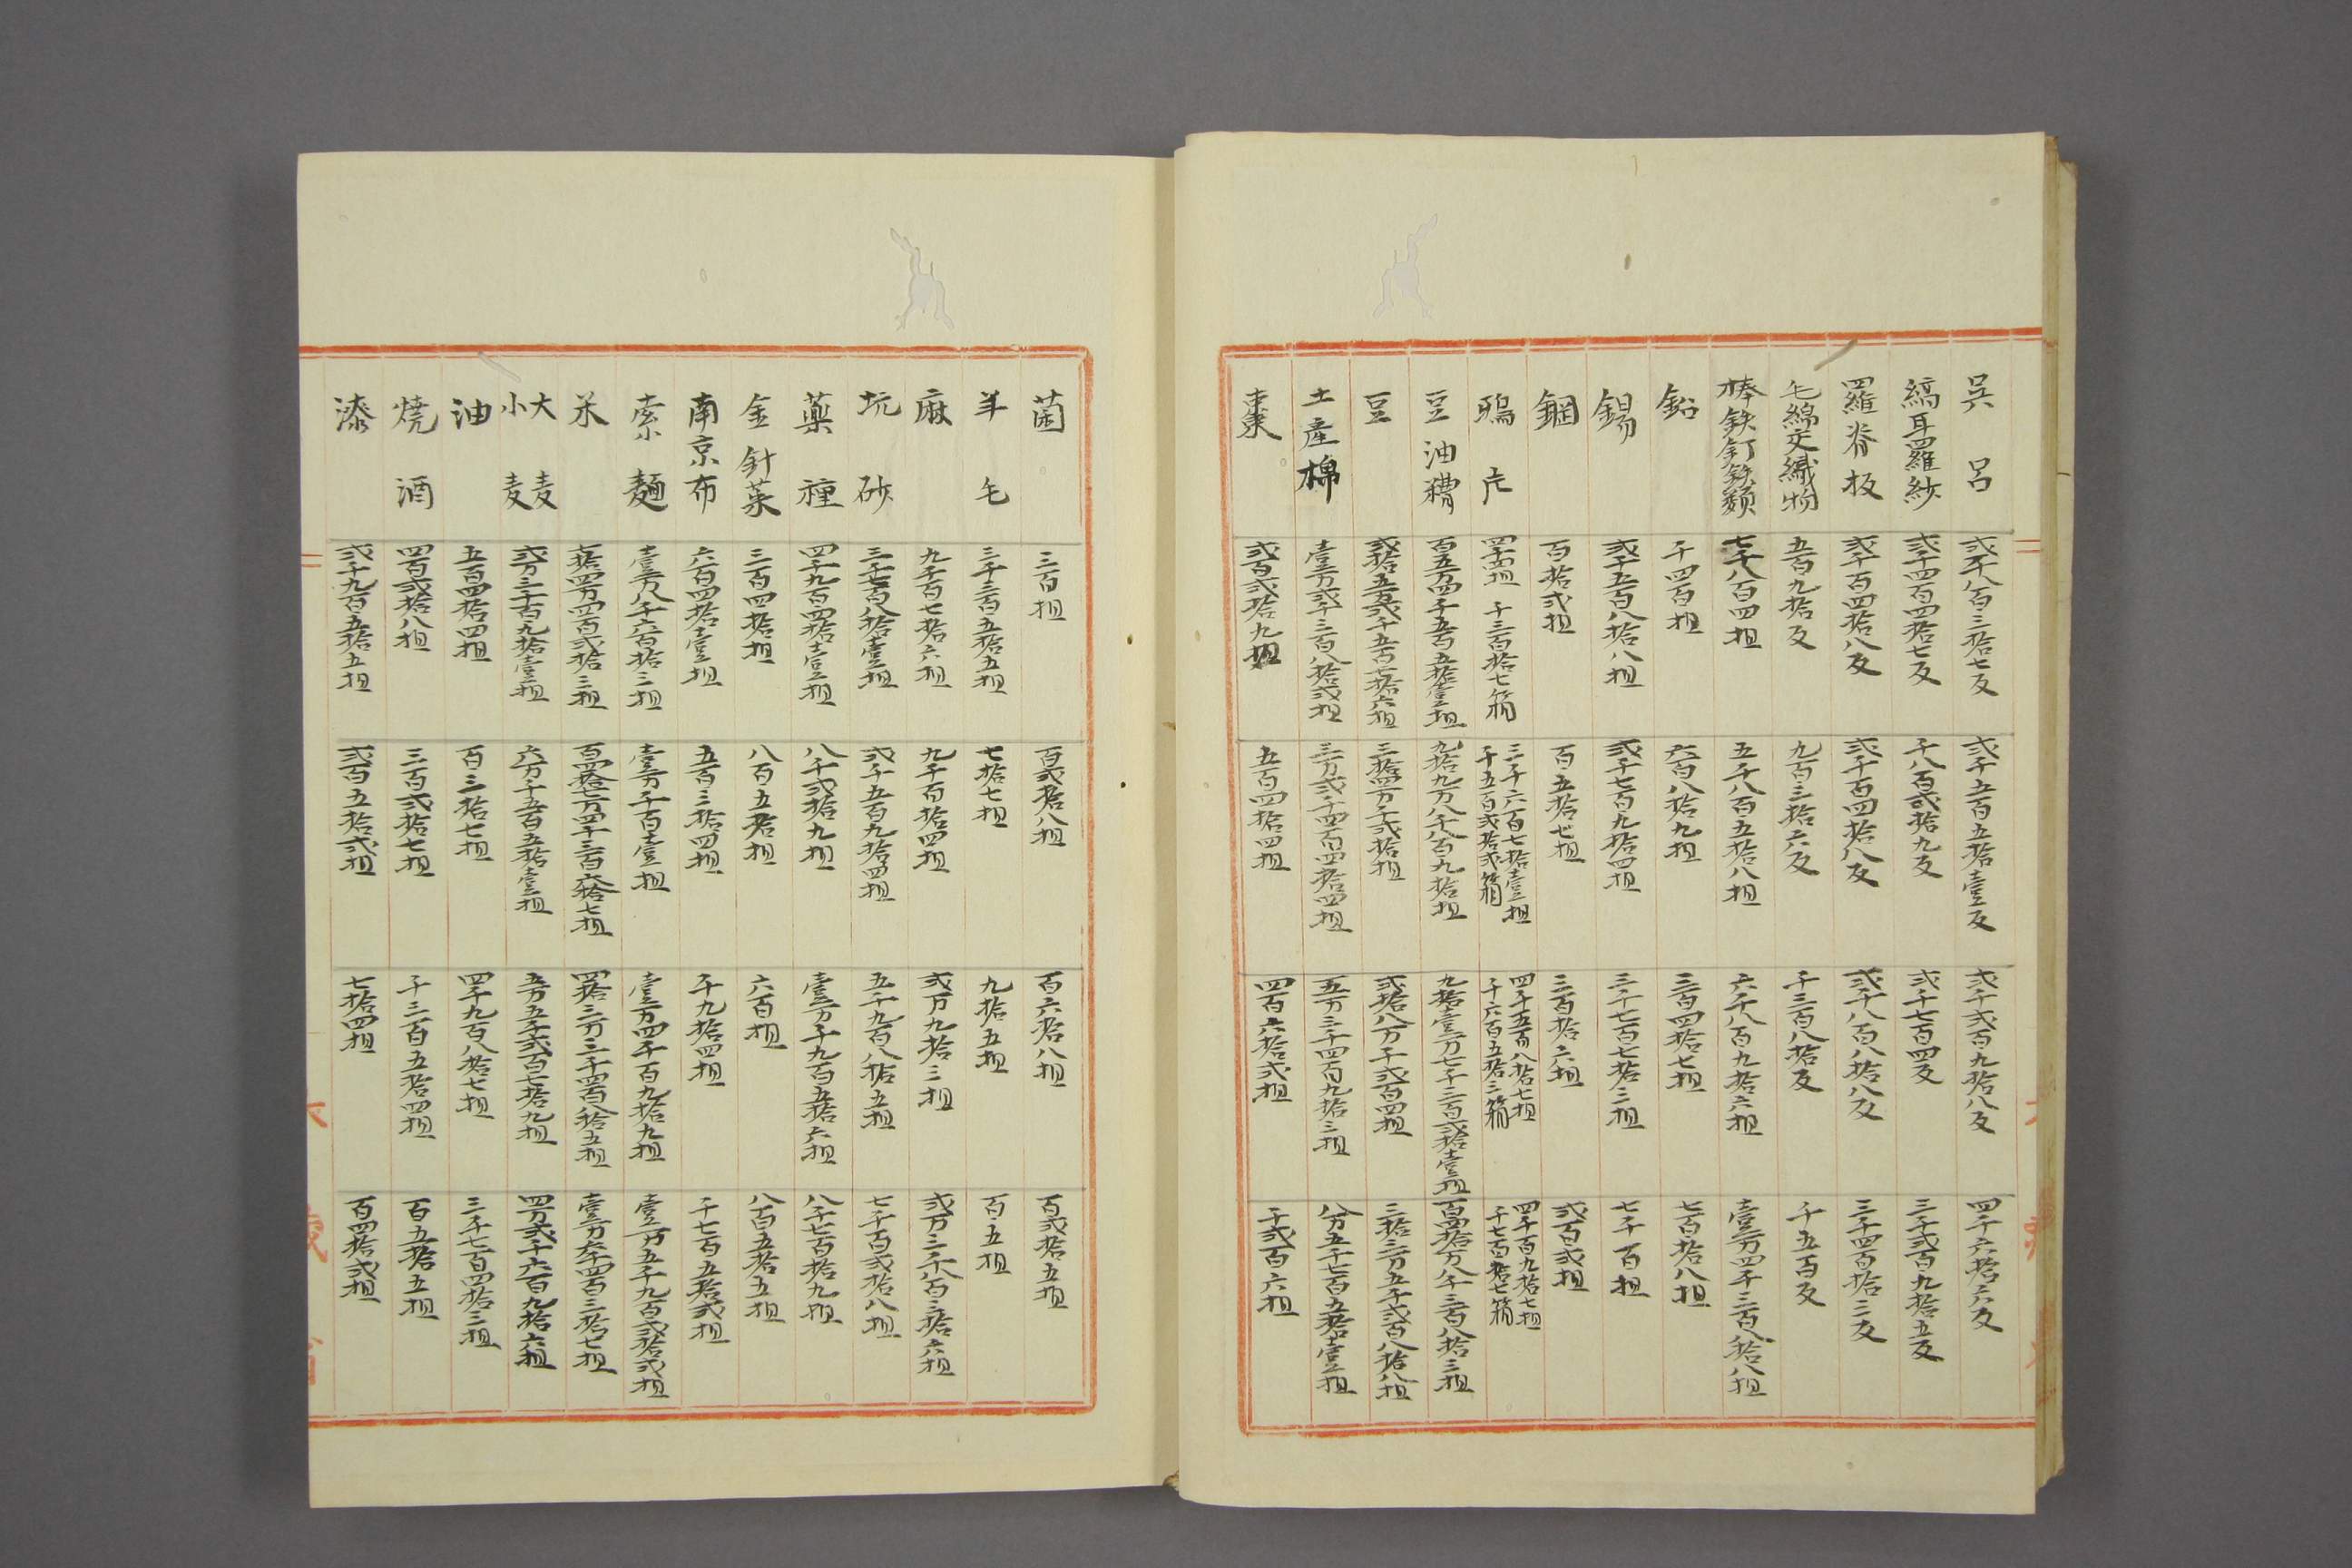 呉呂 弐千八百三拾七反 弐千五百五拾壹反 弐千弐百九拾八反 四千六拾六反
縞耳羅紗 弐千四百四拾七反 千八百弐拾九反 弐千七百四反 三千弐百九拾五反
羅脊板 弐千百四拾八反 弐千百四拾八反 弐千八百八拾八反 三千四百拾三反
毛綿交織物 五百九拾反 九百三拾六反 千三百八拾反 千五百反
棒鉄釘鉄類 七千八百四担 五千八百五拾八担 六千八百九拾六担 壹万四千三百八拾八担
鉛 千四百担 六百八拾九担 三百四拾七担 七百拾八担
錫 弐千五百八拾八担 弐千七百九拾四担 三千七百七拾三担 七千百担
鋼 百拾弐担 百五拾七担 三百拾六担 弐百弐担
鴉片 四千四担 千三百拾七箱 三千六百七拾壹担 千五百弐拾弐箱 四千五百八拾七担 千六百五拾三箱 四千百九拾七担 千七百拾七箱
豆油糟 百五万四千五百五拾壹担 九拾九万八千八百九拾担 九拾壹万七千三百弐拾壹担 百四拾万八千三百八拾三担
豆 弐拾五万弐千五百七拾六担 三拾四万千弐拾担 弐拾八万千弐百四担 三拾三万五千弐百八拾八担
土産棉 壹万弐千三百八拾弐担 三万弐千四百四拾四担 五万三千四百九拾三担 八万五千七百五拾壹担
棗 弐百弐拾九担 五百四拾四担 四百六拾弐担 千弐百六担
菌 三百担 百弐拾八担 百六拾八担 百弐拾五担
羊毛 三千三百五拾五担 七拾七担 九拾五担 百五担
麻 九千百七拾六担 九千百拾四担 弐万九拾三担 弐万三千八百三拾六担
坑砂 三千七百八拾壹担 弐千五百九拾四担 五千九百八拾五担 七千百弐拾八担
薬種 四千九百四拾壹担 八千弐拾九担 壹万千九百五拾六担 八千七百拾九担
金針菜 三百四拾担 八百五拾担 六百担 八百五拾五担
南京布 六百四拾壹担 五百三拾四担 千九拾四担 千七百五拾弐担
索麺 壹万八千六百拾三担 壹万千百壹担 壹万四千百九拾九担 壹万五千九百弐拾弐担
米 七拾四万四百弐拾三担 百四拾七万四千三百六拾七担 四拾三万三千四百八拾五担 壹万六千四百三拾七担
大麦 小麦 弐万三千百九拾壹担 六万千五百五拾壹担 五万五千弐百七拾九担 四万弐千六百九拾六担
油 五百四拾四担 百三拾七担 四千九百八拾七担 三千七百四拾三担
焼酒 四百弐拾八担 三百弐拾七担 千三百五拾四担 百五拾五担
漆 弐千九百五拾五担 弐百五拾弐担 七拾四担 百四拾弐担